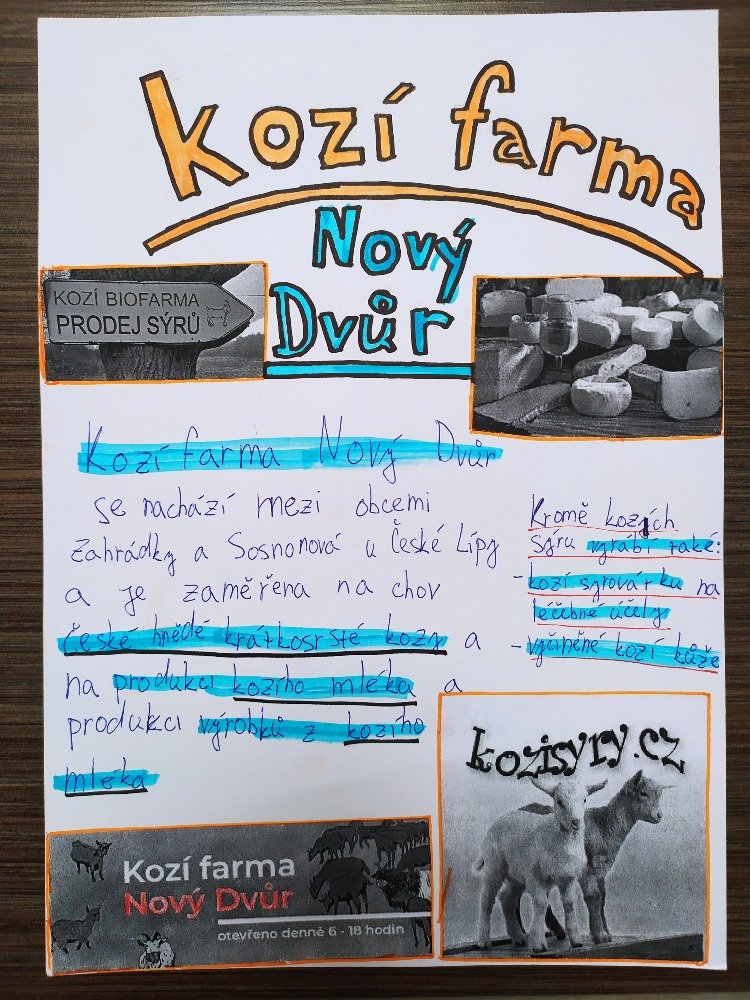 Kozí farma
Nový
Dvůr
KOZÍ BIOFARMA
PRODEJ SÝRŮ
Kozí farma Nový Dvůr
se nachází mezi obcemi
Zahrádky a Sosnonová u České Lípy
a je zaměřena na chov
české hnědé krátkosrsté kozy a
na produkci kozího mléka a
produkci výrobků z kozího
mléka
Kromě kozích
sýru vyrábí také:
- kozí syrovátku na
léčebné účely
- vyčiněné kozí kůže
kozisyry.cz
Kozí farma
Nový Dvůr
otevřeno denně 6 - 18 hodin